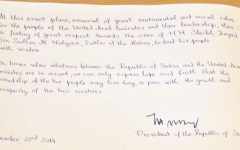 At this exact place, memorial of great sentimental and moral value
for the people of the United Arab Emirates and their leadership, there
is feeling of great respect towards the vision of H.H. Sheikh Zayed
bin Sultan Al Nahyan, Father of the Nation, to lead his people
with wisdom.
In times when relations between the Republic of Serbia and the United Arab
Emirates are on ascent, we can only express hope and faith that the
friendship of the two peoples may live long, in peace with the growth and
prosperity of the two countries.
22nd
President of the Republic of Se